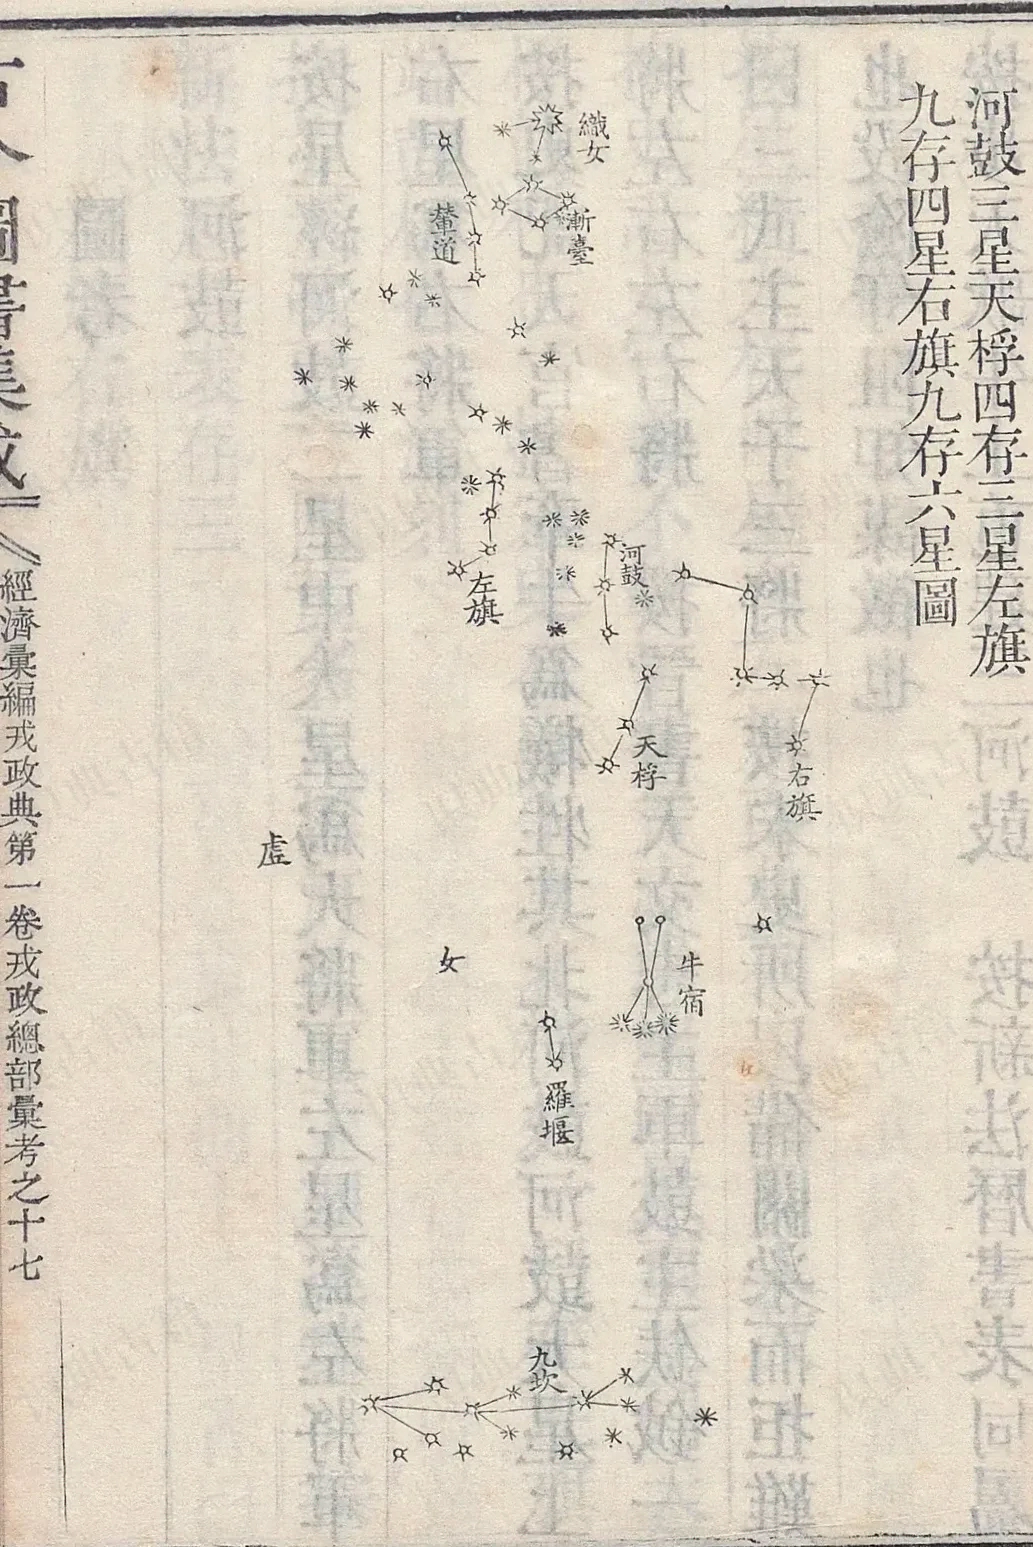 河鼓三星天桴四存三星左旗
九存四星右旗九存六星圖
織女
漸臺
輦道
河鼓
左旗
天桴
右旗
虛
女
牛宿
羅堰
九坎
圖書集成
經濟彙編戎政典第一卷戎政總部彙考之十七